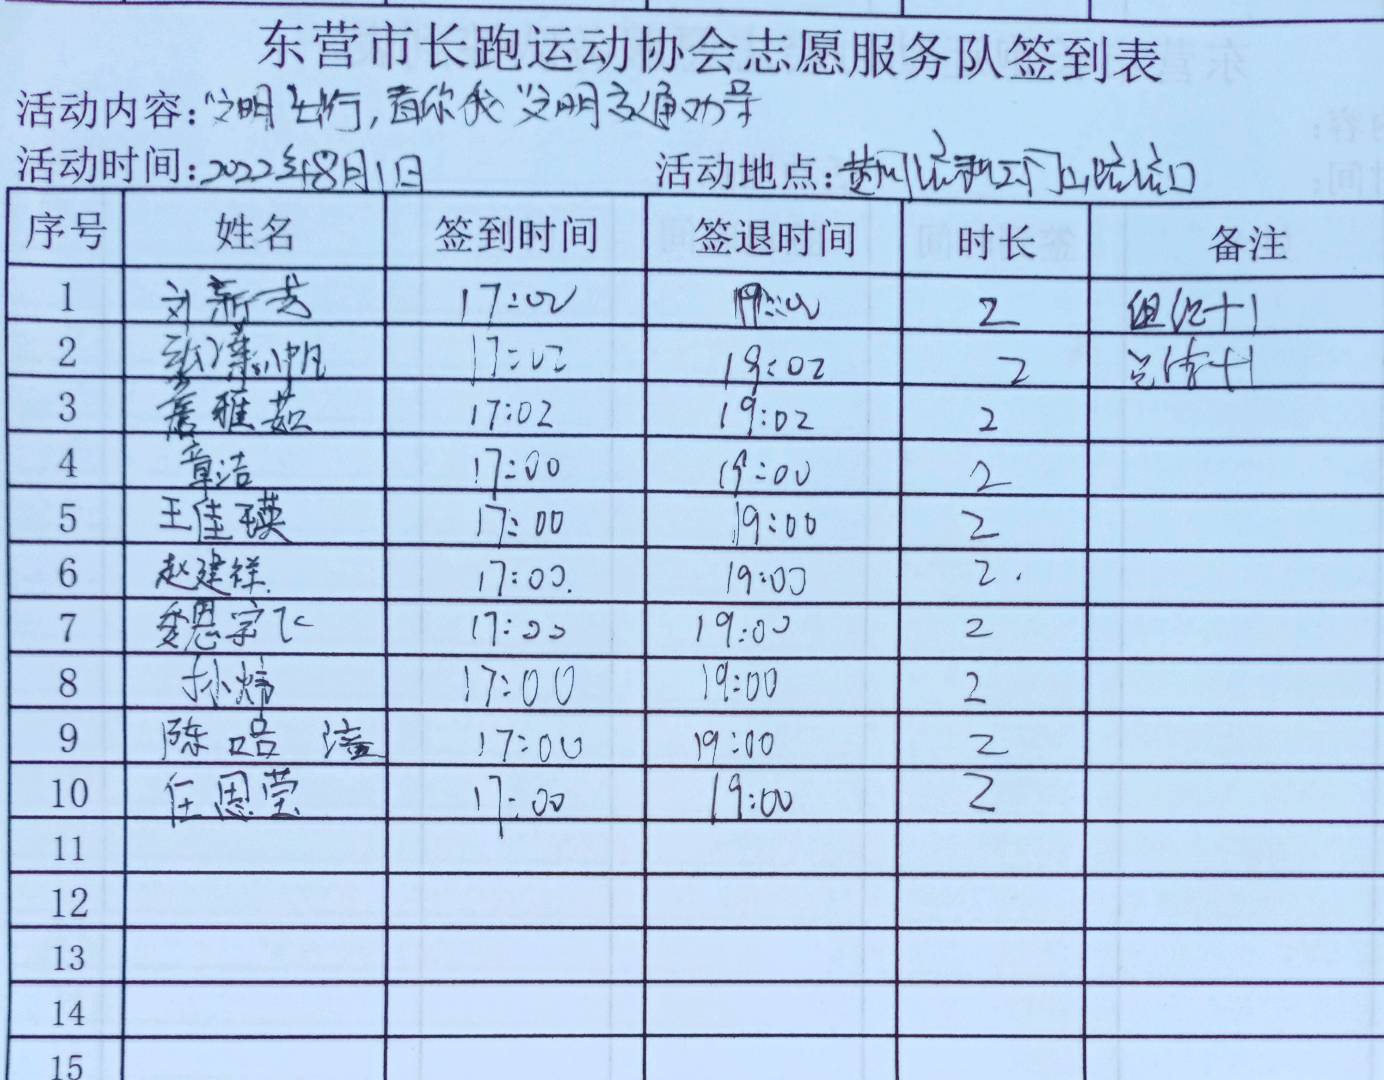 东营市长跑运动协会志愿服务队签到表
活动内容:"文明"出行,看你我"文明交通劝导
活动时间:2022年8月1日 活动地点:黄河路 路口
序号 姓名 签到时间 签退时间 时长 备注
1 刘新芳 17:02 19:02 2 组织+1
2 帆 17:02 19:02 2 总结+1
3 雅茹 17:02 19:02 2
4 章洁 17:00 19:00 2
5 王佳瑛 17:00 19:00 2
6 赵建祥 17:00 19:00 2
7 宗飞 17:00 19:00 2
8 孙炜 17:00 19:00 2
9 陈 17:00 19:00 2
10 任恩莹 17:00 19:00 2
11
12
13
14
15